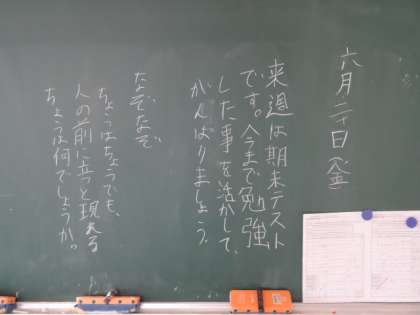 六月二十日(金)
来週は期末テスト
です。今まで勉強
した事を活かして、
がんばりましょう。
なぞなぞ
ちょうはちょうでも、
人の前に立つと現れる
ちょうは何でしょうか。